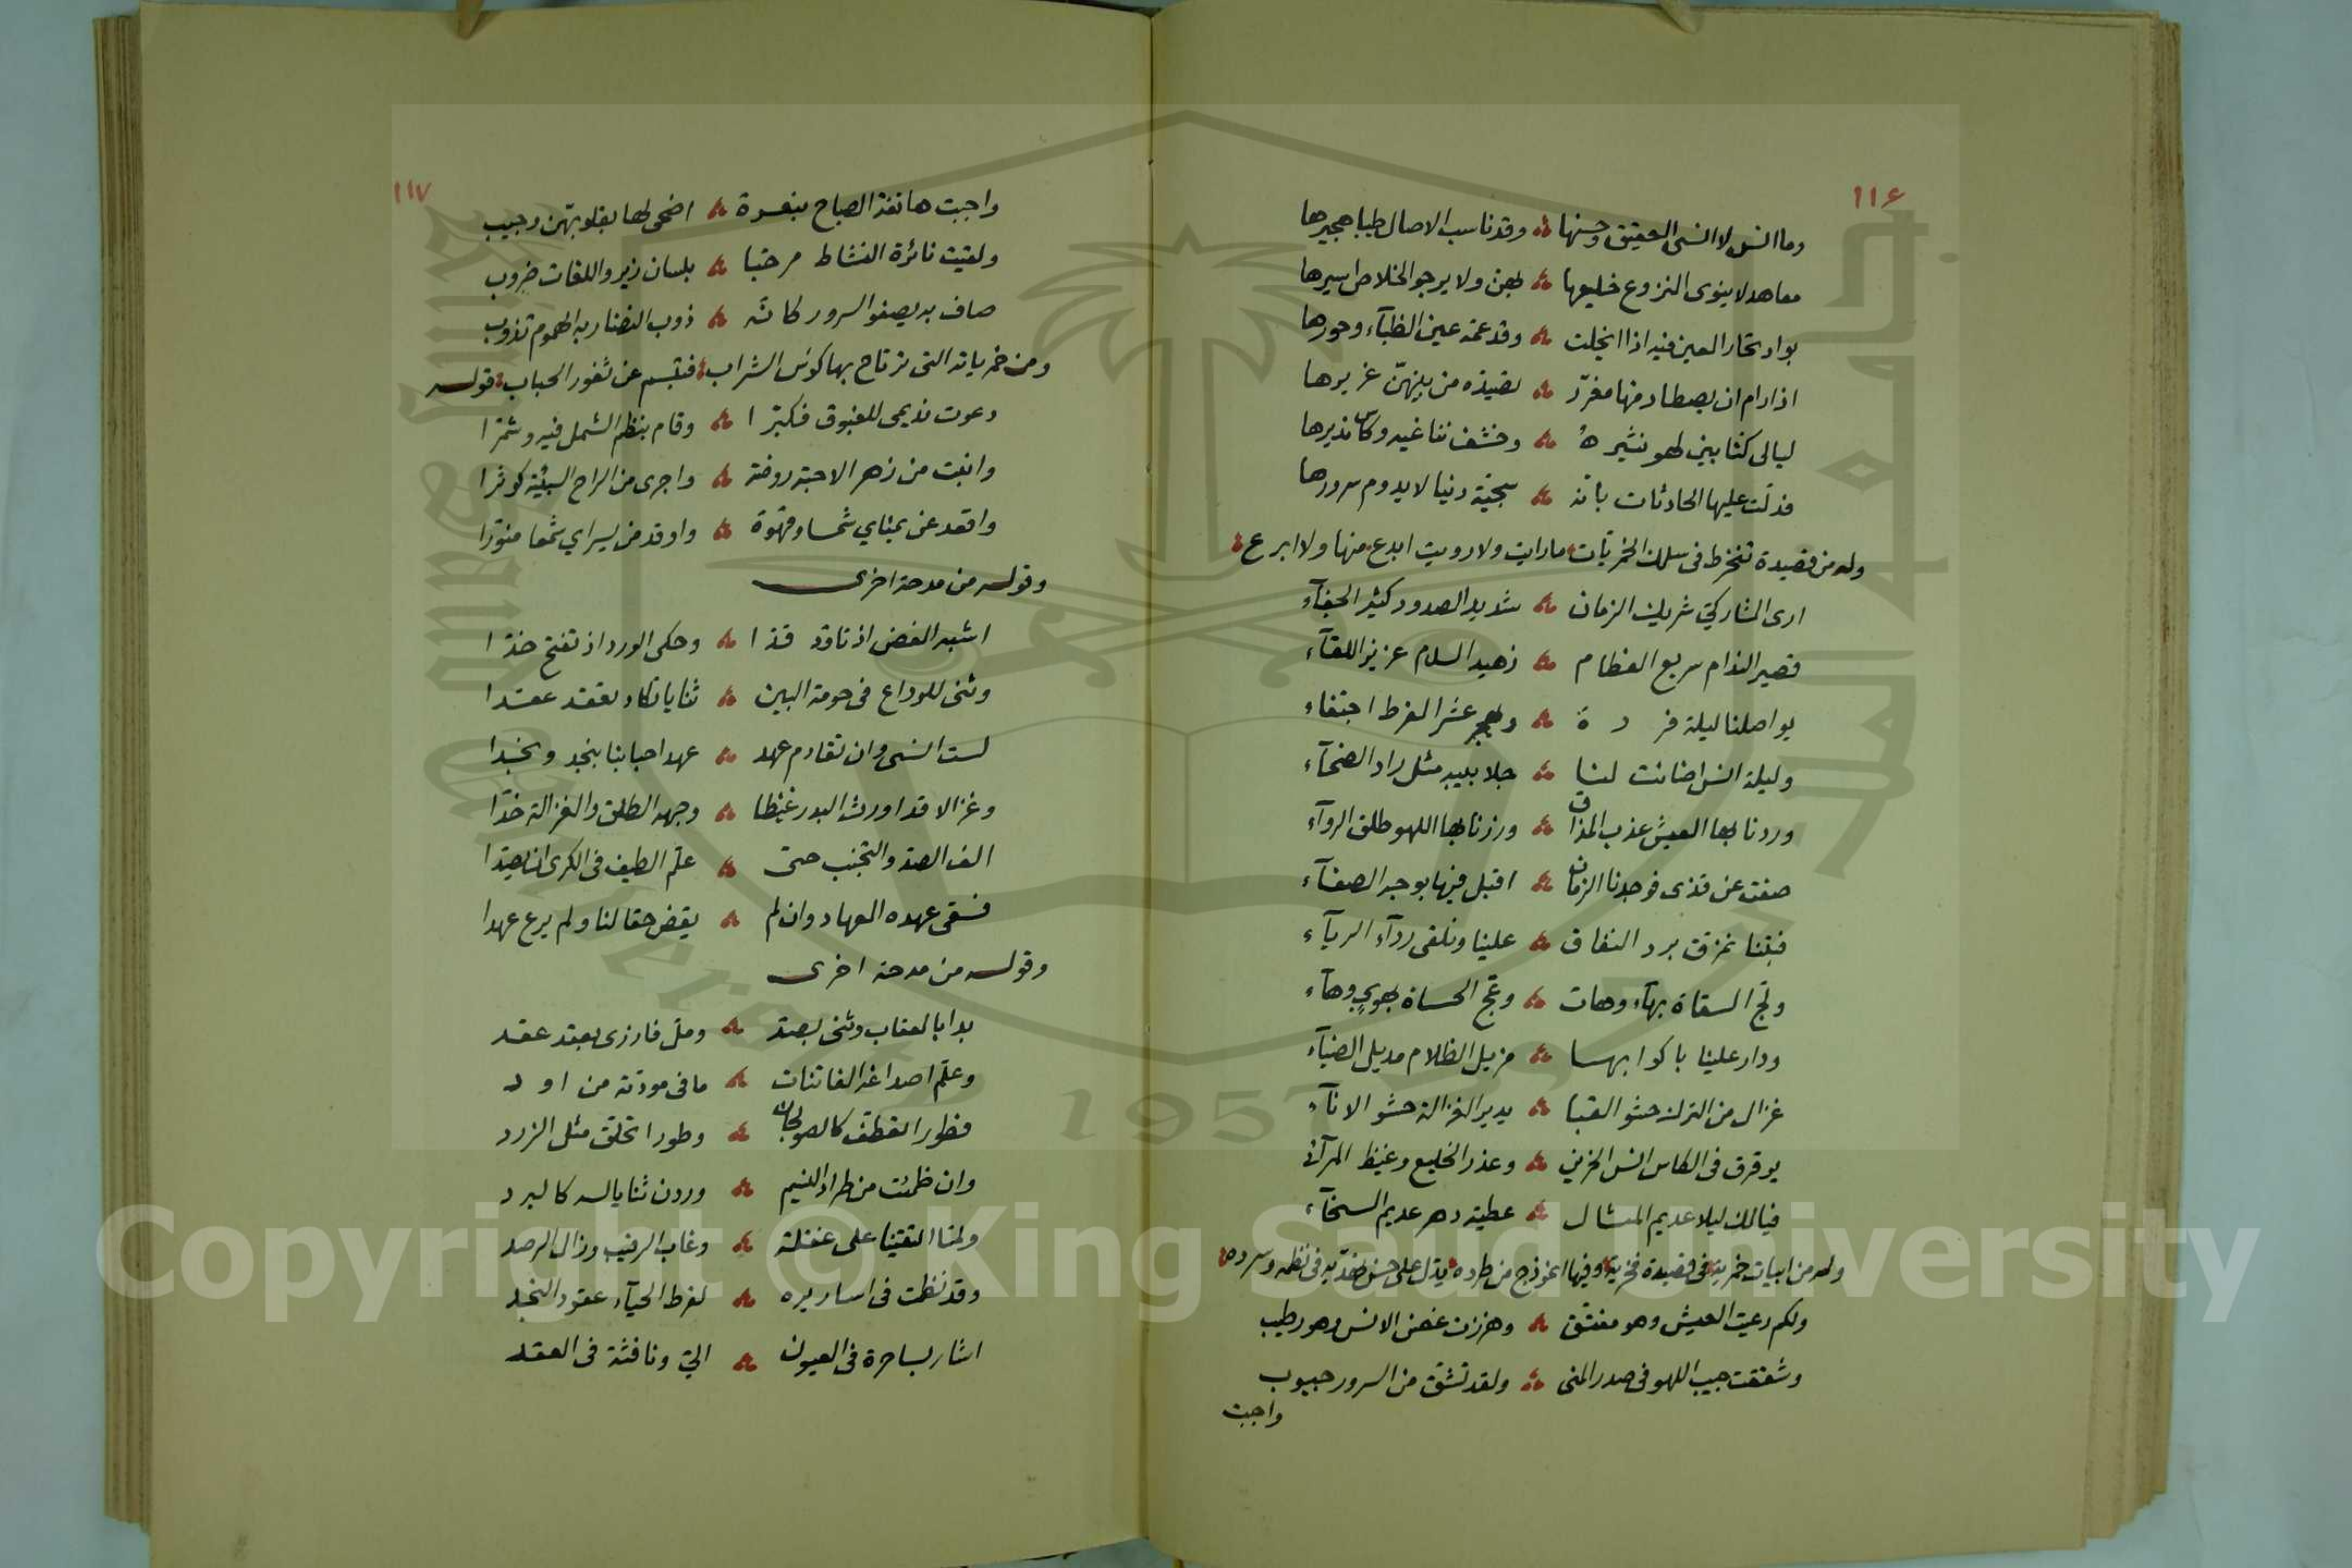 ١١٦
وما انس لا انسى العقيق وحسنها وقد ناسب الاصال طيبا هجيرها
معاهد لا ينوى النزوع خليعها بهن ولا يرجو الخلاص اسيرها
بواد تحار العين فيه اذا انجلت وقد عنه عين الظبآء وحورها
اذا رام ان يصطاد منها مغرّر تصيذه من بينهنّ غريرها
ليالى كنا بين لهو نثيره وخشف نناغيه وكاس نديرها
فدلت عليها الحادثات بانه سجية دنيا لا يدوم سرورها
وله من قصيدة تنخرط فى سلك الخمريّات ما رايت ولا رويت ابدع منها ولا ابرع
ارى المشاركي شريك الزمان شديد الصدود كثير الجفآء
قصير الذمام سريع الفطام زهيد السلام عزيز اللقآء
يواصلنا ليلة فردة ويهجر عشرا لفرط اجتفاء
وليلة انس اضائت لنا جلابيبه مثل راد الضحآء
وردنا بها العيش عذب المذاق وزرنا بها اللهو طلق الروآء
صفت عن قذى فوجدنا الزمان اقبل فيها بوجه الصفآء
فبتنا نمزق برد النفاق علينا ونلقى ردآء الريآء
ولج السقاة بهآء وهات وعج الحساة بهوي وهآء
ودار علينا باكوابها مزيل الظلام مديل الضيآء
غزال من الترك حشو القبا يدير الغزالة حشو الانآء
يرقرق فى الكاس انس الحزين وعذر الخليع وغيظ المرآئ
فيا لك ليلا عديم المثال عطية دهر عديم السخآء
وله من ابيات خمرية فى قصيدة فخرية وفيها انموذج من طرده يدل على حسن نضديه فى نظمه وسرده
ولكم رعيت العيش وهو مفتق وهززت غصن الانس وهو رطيب
وشققت جيب اللهو فى صدر المنى ولقد تشق من السرور جيوب
واجبت
١١٧
واجبت هاتفة الصباح بنعرة اضحى لها بقلوبهن وجيب
ولقيت نائرة النشاط مرحبا بلسان زير واللغات ضروب
صاف به يصفو السرور كانّه ذوب النضار به الهموم تذوب
ومن خمرياته التى ترتاح بها كوس الشراب فتبسم عن ثغور الحباب قوله
دعوت نديمى للغبوق فكبّرا وقام بنظم الشمل فيه وشمرا
وانبت من زهر الاحبة روضة واجرى من الراح السبيئة كوثرا
واقعد عن يمناي شمسا وقهوة واوقد من يسراي شمعا منوّرا
وقوله من مدحة اخرى
اشبه الغصن اذ تاوّد قدّا وحكى الورد اذ تفتح خدّا
وثنى للوداع فى حومة البين ثنايا تكاد تعقد عقدا
لست انسى وان تقادم عهد عهد احبابنا بنجد ونجدا
وغزالا قد اورث البدر غيظا وجهه الطلق والغزالة خدّا
الف الصد والتجنب حتى علّم الطيف فى الكرى ان يصدا
فسقى عهده العهاد وان لم يقض حقا لنا ولم يرع عهدا
وقوله من مدحة اخرى
بدا بالعتاب وثنى بصد وملّ فازرى بعقد عقد
وعلّم اصداغه الفاتنات ما فى مودّته من اود
فطورا تعطف كالصولجان وطورا تحلق مثل الزرد
وان ظمئت من طراد النسيم وردن ثنايا له كالبرد
ولما التقينا على غفلة وغاب الرقيب وزال الرصد
وقد نظمت فى اساريره لفرط الحيآء عقود النجد
اشار بساحرة فى العيون اليّ ونافثة فى العقد
Copyright © King Saud University
King Saud University
1957